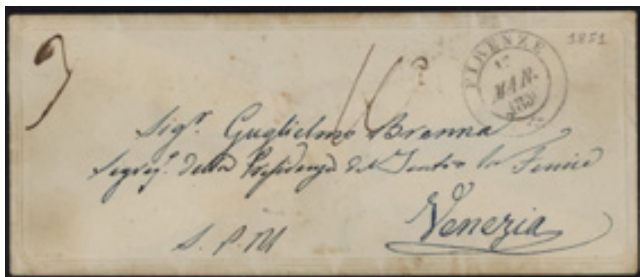 1851
FIRENZE
17
MAR.
1851
Sigr. Guglielmo Brenna
Segret. della Presidenza del Teatro la Fenice
Venezia
S. P. M